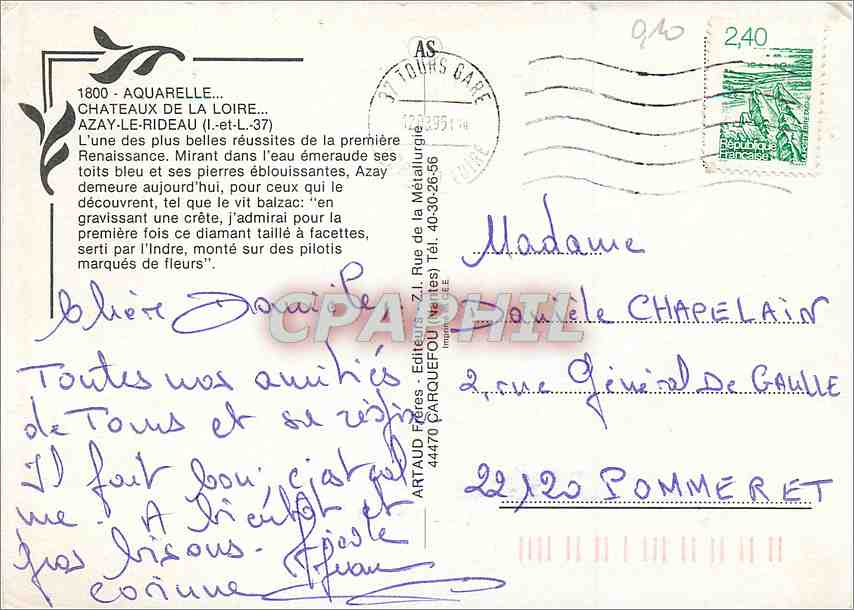 0,10
2,40
République
Française
37 TOURS GARE
LOIRE
1800 - AQUARELLE...
CHATEAUX DE LA LOIRE...
AZAY-LE-RIDEAU (I.-et-L.-37)
L'une des plus belles réussites de la première
Renaissance. Mirant dans l'eau émeraude ses
toits bleu et ses pierres éblouissantes, Azay
demeure aujourd'hui, pour ceux qui le
découvrent, tel que le vit balzac: "en
gravissant une crête, j'admirai pour la
première fois ce diamant taillé à facettes,
serti par l'Indre, monté sur des pilotis
marqués de fleurs".
Chère Danièle,
Toutes nos amitiés
de Tours et sa région
Il fait bon, c'est cal
me. A bientôt et
gros bisous.
Corinne
AS
ARTAUD Frères - Editeurs - Z.I. Rue de la Métallurgie
44470 CARQUEFOU (Nantes) Tél. 40-30-26-56
Imprimé C.E.E.
CPAPHIL
Madame
Danièle CHAPELAIN
2, rue Général De GAULLE
22120 POMMERET